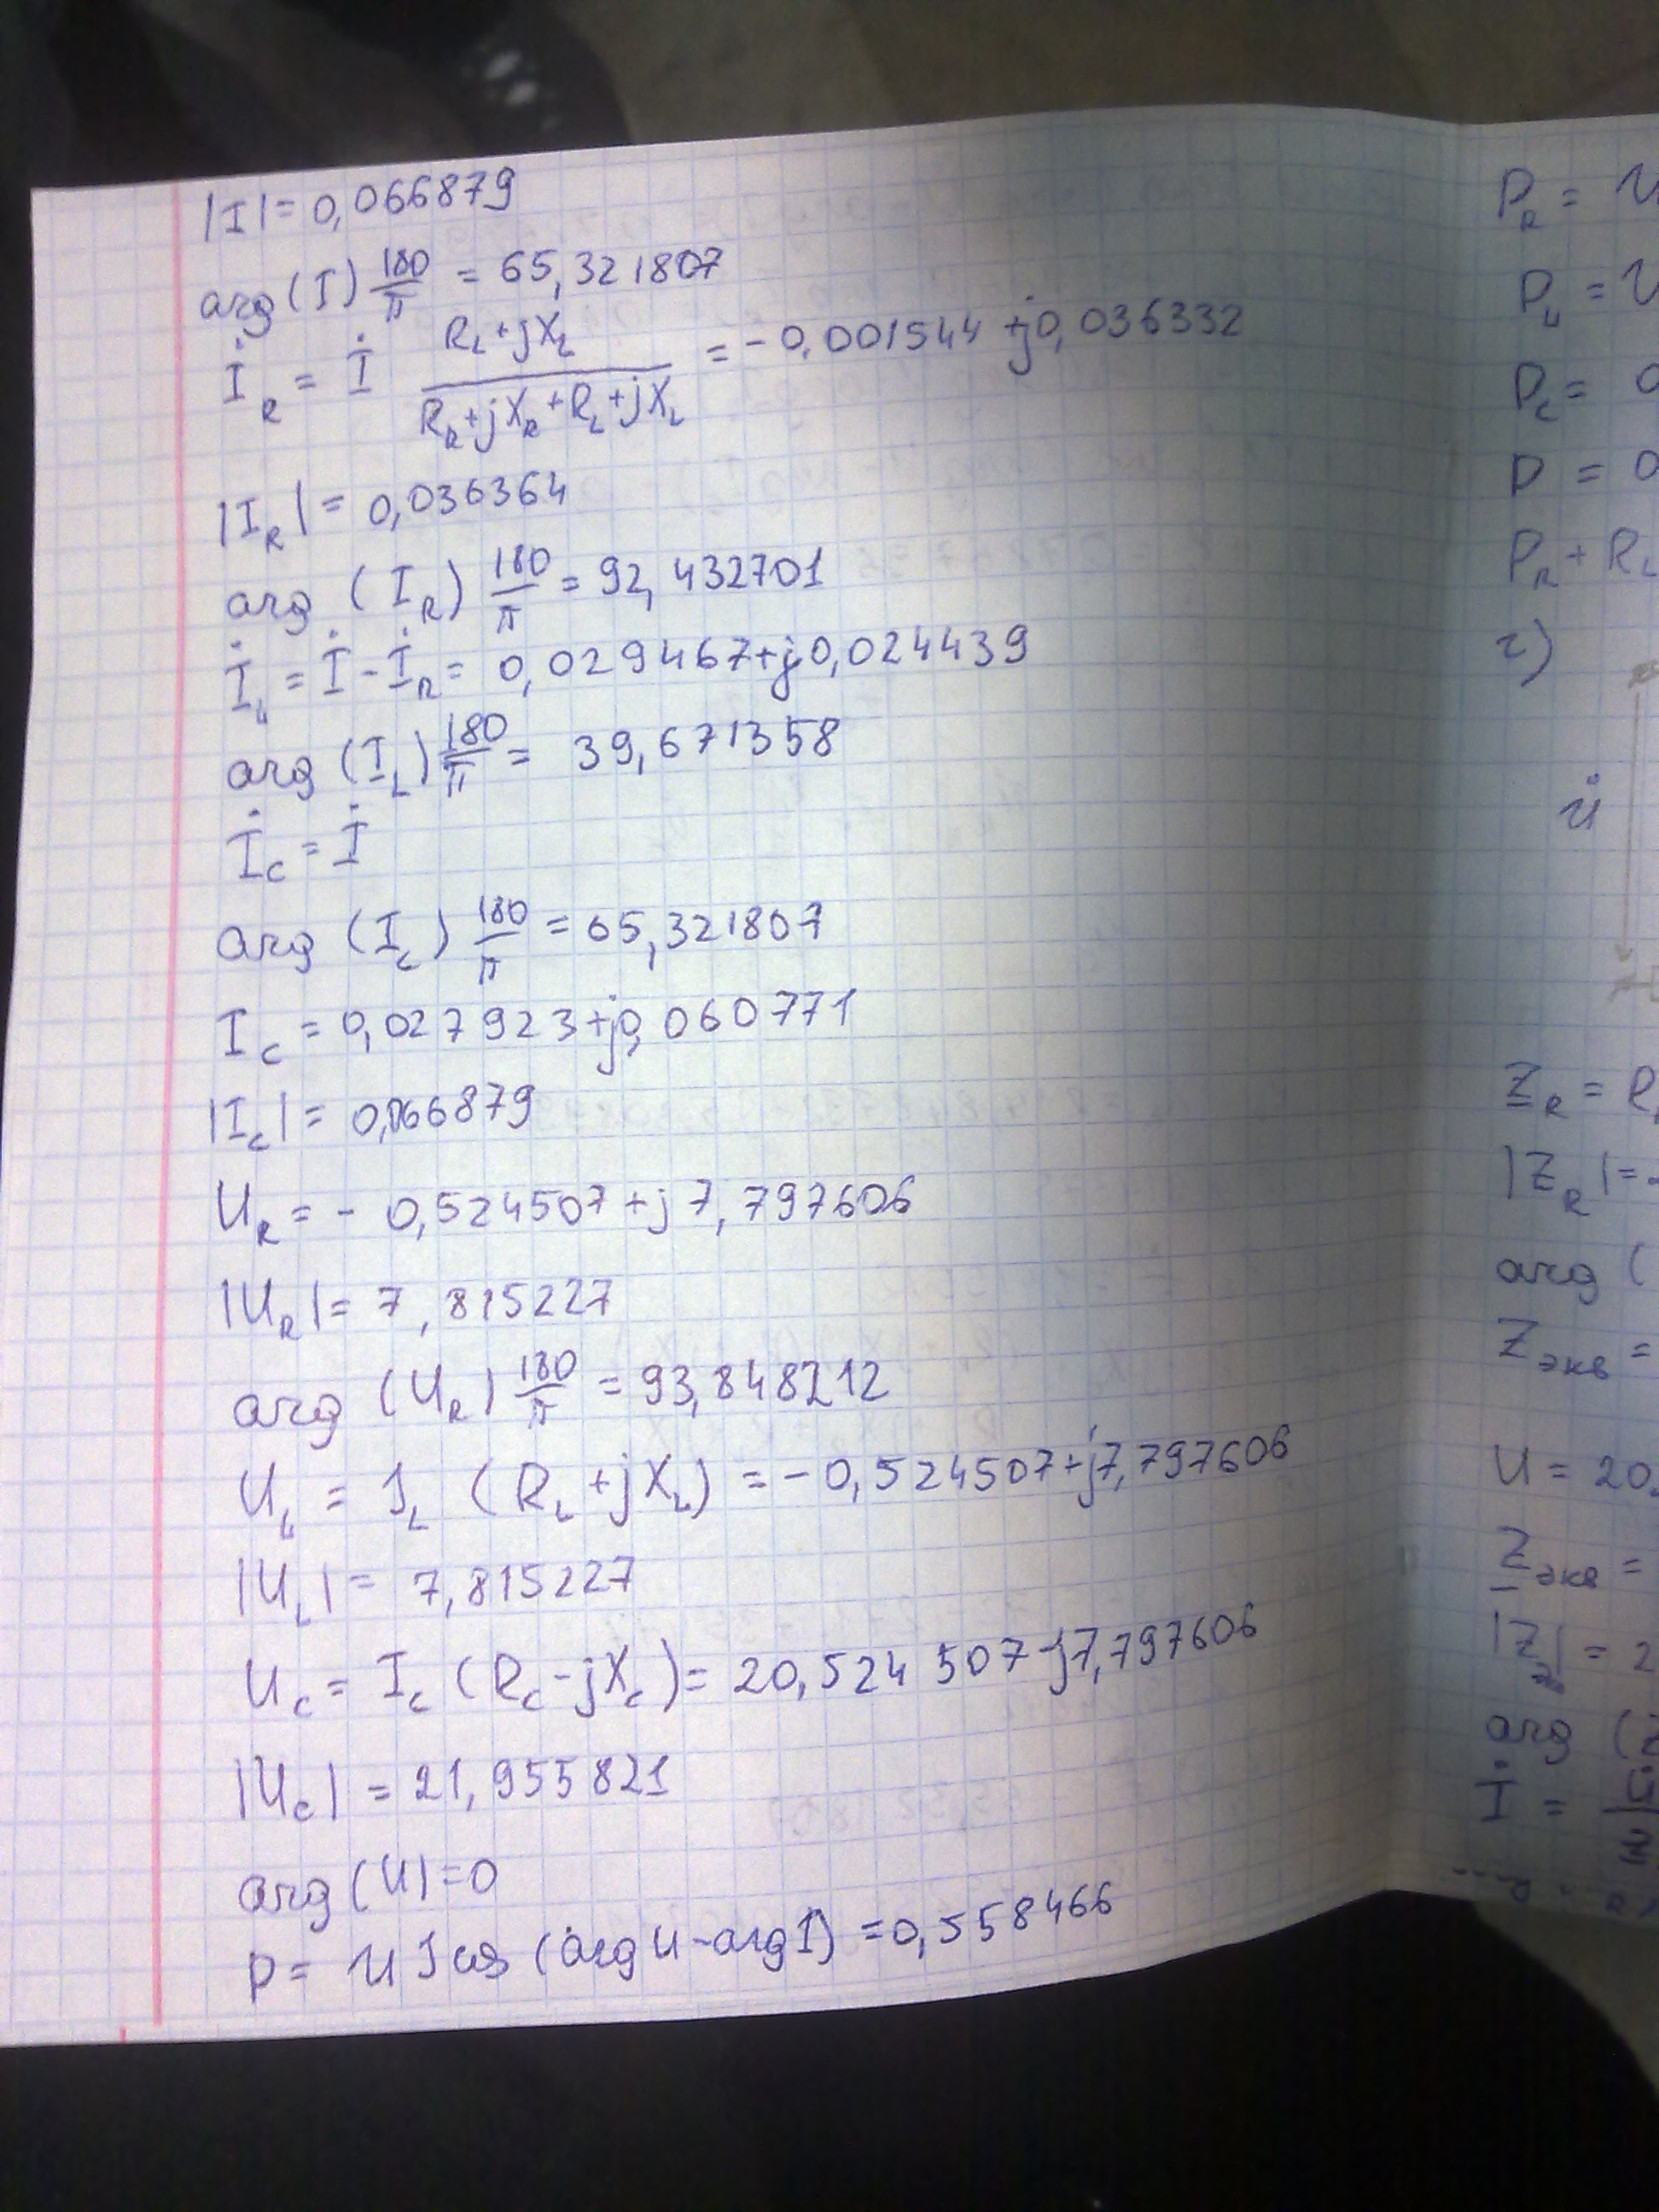 |I| = 0,066879
arg(I) 180/π = 65,321807
İ_R = İ (R_L + jX_L)/(R_R + jX_R + R_L + jX_L) = -0,001544 + j0,036332
|I_R| = 0,036364
arg (I_R) 180/π = 92,432701
İ_L = İ - İ_R = 0,029467 + j0,024439
arg (I_L) 180/π = 39,671358
İ_C = İ
arg (I_C) 180/π = 65,321807
I_C = 0,027923 + j0,060771
|I_C| = 0,066879
U_R = - 0,524507 + j7,797606
|U_R| = 7,815227
arg (U_R) 180/π = 93,848212
U_L = I_L (R_L + jX_L) = -0,524507 + j7,797606
|U_L| = 7,815227
U_C = I_C (R_C - jX_C) = 20,524507 - j7,797606
|U_C| = 21,955821
arg (U) = 0
P = U I cos (arg U - arg I) = 0,558466
P_R = U
P_L = U
P_C = 0
P = 0
P_R + P_L
г)
U̇
Z_R = R
|Z_R| =
arg (
Z_экв =
U = 20,
Z_экв =
= 2
arg (
İ =